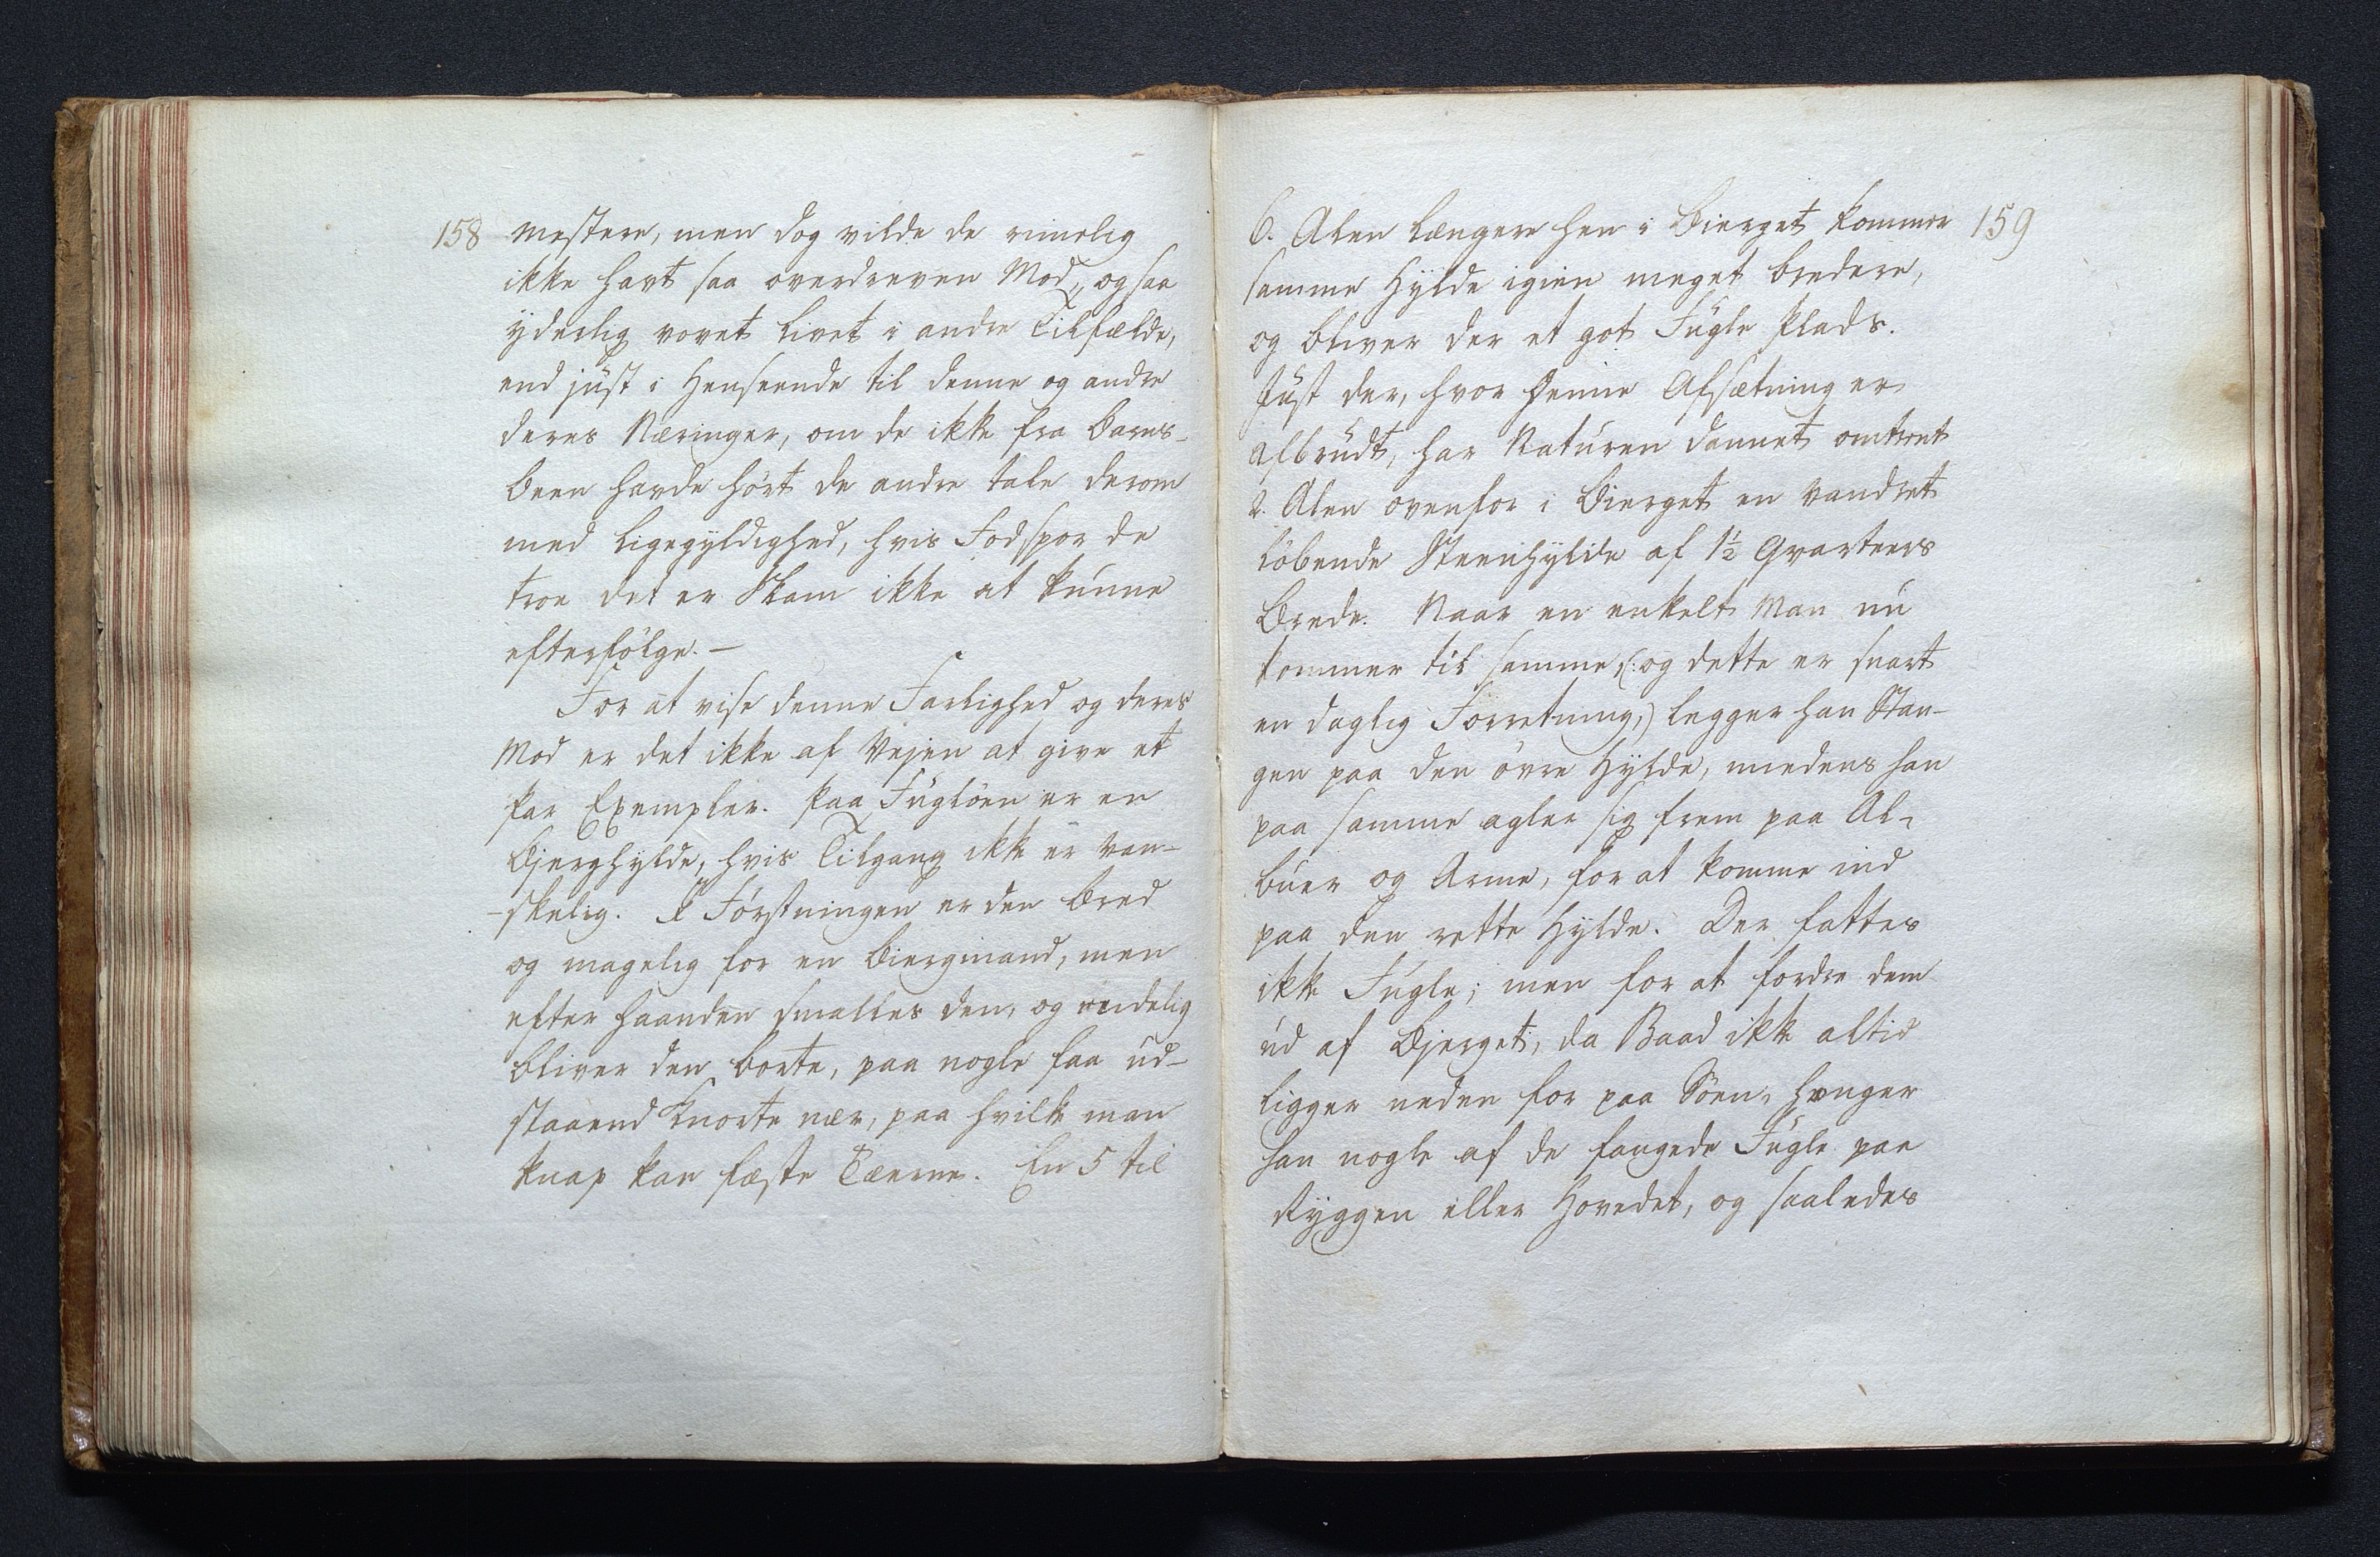 158
mestere, men dog vilde de rimelig
ikke havt saa overdreven Mod, og saa
yderlig vovet Livet i andre Tilfælde,
end just i Henseende til denne og andre
deres Næringer, om de ikke fra Barns-
been havde hørt de andre tale derom
med Ligegyldighed, hvis Fodspor de
troe det er Skam ikke at kunne
efterfølge. —
For at vise denne Farlighed og deres
Mod er det ikke af Vejen at give et
Par Exempler. Paa Fugløen er en
Bjerghylde, hvis Tilgang ikke er van-
-skelig. I Førstningen er den bred
og magelig for en Biergmand, men
efter haanden smalles den, og endelig
bliver den borte, paa nogle faa ud-
staaend Knorte nær, paa hvilke man
knap kan fæste Tæerne. En 5 til
159
6. Alen længere hen i Bierget kommer
samme Hylde igien meget bredere,
og bliver der et got Fugle Plads.
Just der, hvor denne Afsætning er
afbrudt, har Naturen dannet omtrent
2. Alen ovenfor i Bierget en vandret
løbende Steenhylde af 1½ Qvarteers
Brede. Naar en enkelt Man nu
kommer til samme, (: og dette er snart
en daglig Forretning,) legger han Stan-
gen paa den øvre Hylde, medens han
paa samme agler sig frem paa Al-
buer og Arme, for at komme ind
paa den rette Hylde. Der fattes
ikke Fugle; men for at fordre dem
ud af Bjerget, da Baad ikke altid
ligger neden for paa Søen, henger
han nogle af de fangede Fugle paa
Ryggen eller Hovedet, og saaledes